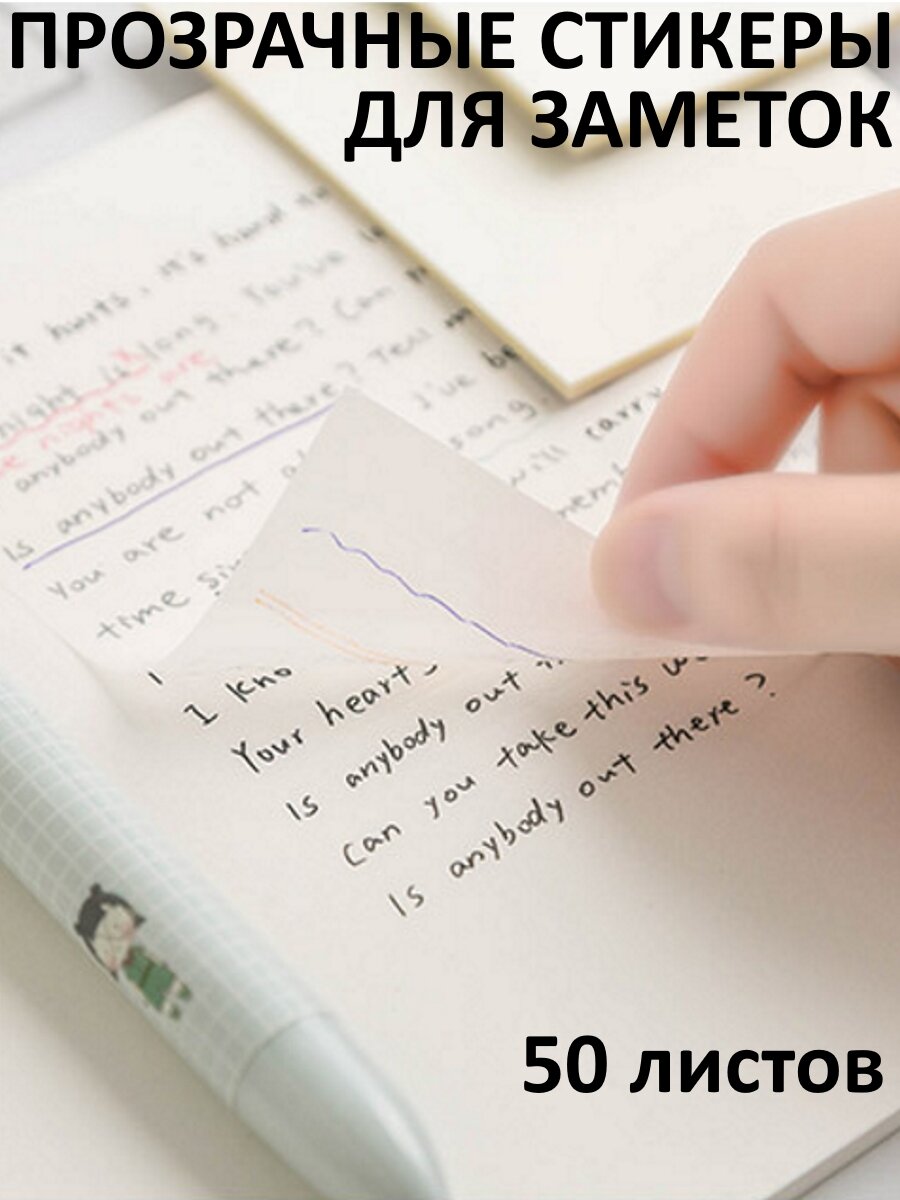 ПРОЗРАЧНЫЕ СТИКЕРЫ
ДЛЯ ЗАМЕТОК
it hurts. it's hard
night is long. You've
nights are
anybody out there? Can
Is anybody out there? Tell
I've be
You are not
song.
time
will carry
I
I kno
Your heart
Is anybody out
Can you take this
Is anybody out there?
50 листов